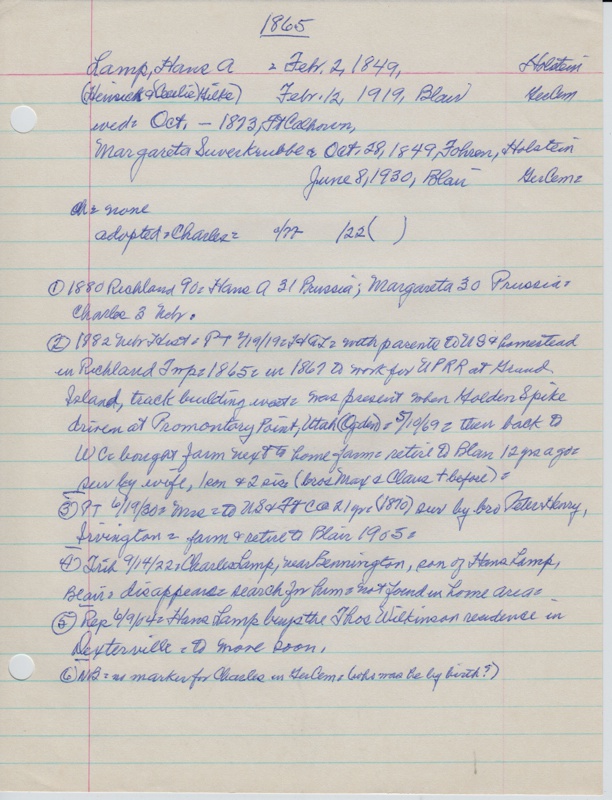 1865
Lamp, Hans A = Feb. 2, 1849, Holstein
(Heinrich & Cecilia Hilke) Feb. 12, 1919, Blair GerCem
wed= Oct. - 1873, Ft Calhoun,
Margareta Suverkrubbe & Oct. 28, 1849, Fohren, Holstein
June 8, 1930, Blair GerCem=
ch= none
adopted= Charles= c/77 /22 ( )
① 1880 Richland 90= Hans A 31 Prussia; Margareta 30 Prussia=
Charles 3 Nebr.
② 1882 Nebr Hist= PT 2/19/19= H &I= with parents to US & homestead
in Richland Twp= 1865= in 1867 to work for UPRR at Grand
Island, track building west= was present when Golden Spike
driven at Promontory Point, Utah (Ogden)= 5/10/69= then back to
WC= bought farm next to home farm= retire to Blair 12 yr ago=
sur by wife, 1 son & 2 sis (bros Max & Claus + before)=
③ PT 6/19/30= Mrs= to US & Ft C @ 21 yr= (1870) sur by bro Peter Henry,
Irvington= farm & retire to Blair 1905=
④ Trib 9/14/22= Charles Lamp, near Bennington, son of Hans Lamp,
Blair= disappears= search for him= not found in home area=
⑤ Rep 6/9/04= Hans Lamp buys the Thos Wilkinson residence in
Dexterville= to move soon.
⑥ NB= no marker for Charles in GerCem= (who was he by birth?)